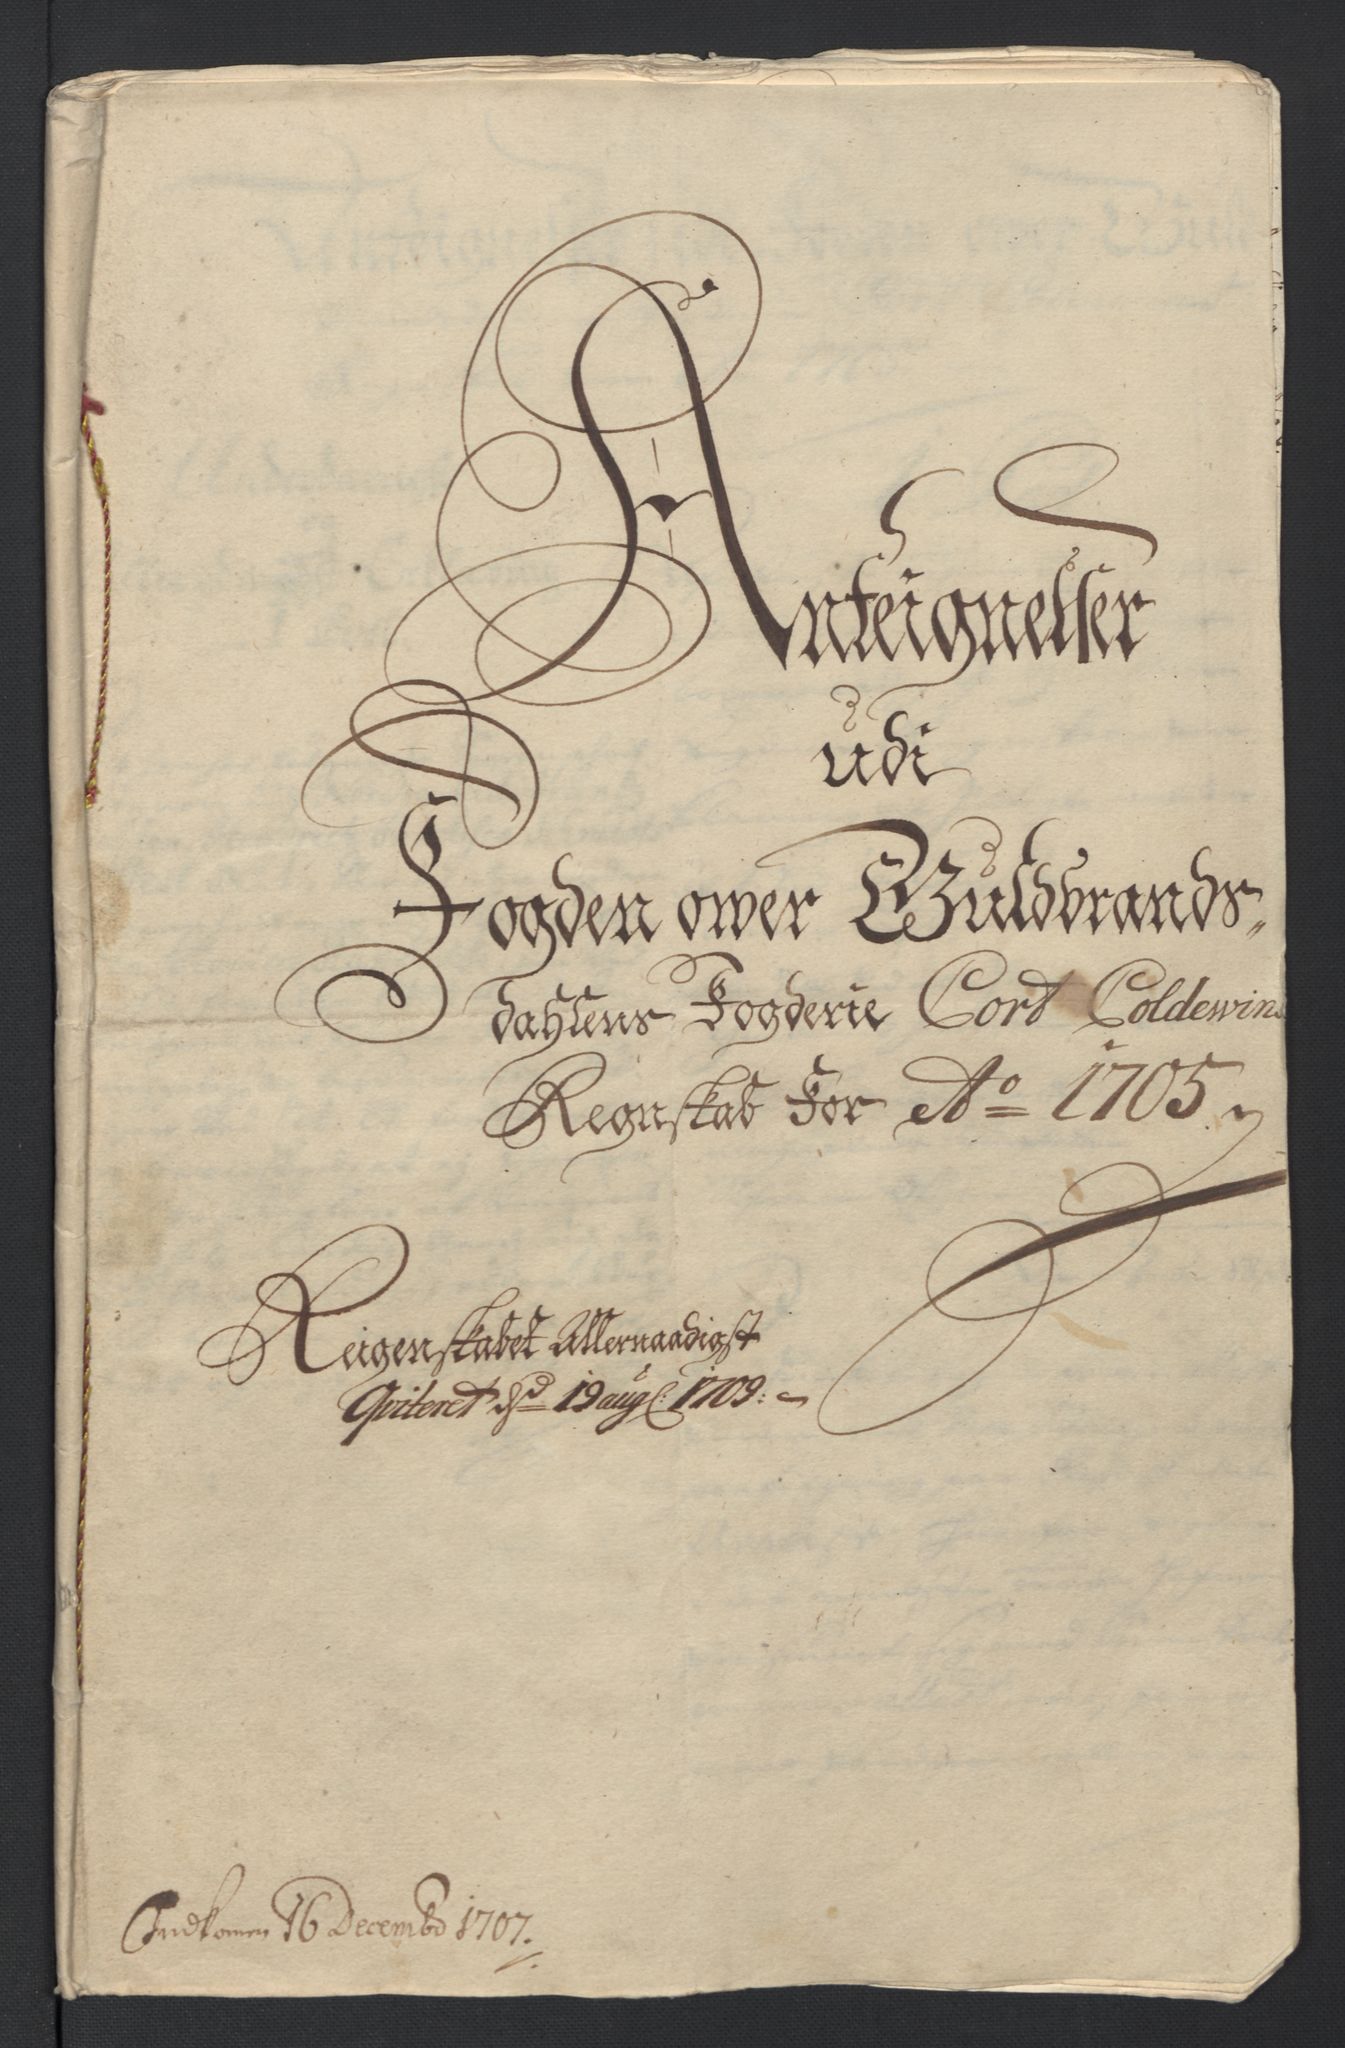 Anteignelser
udi
Fogden ower Guldbrands-
dahlens Fogderie Cort Coldewins
Regnskab for Ao 1705
Reigenskabet Allernaadigst
Qviteret d 19 aug: 1709:
Indkomen 16 Decembr 1707.